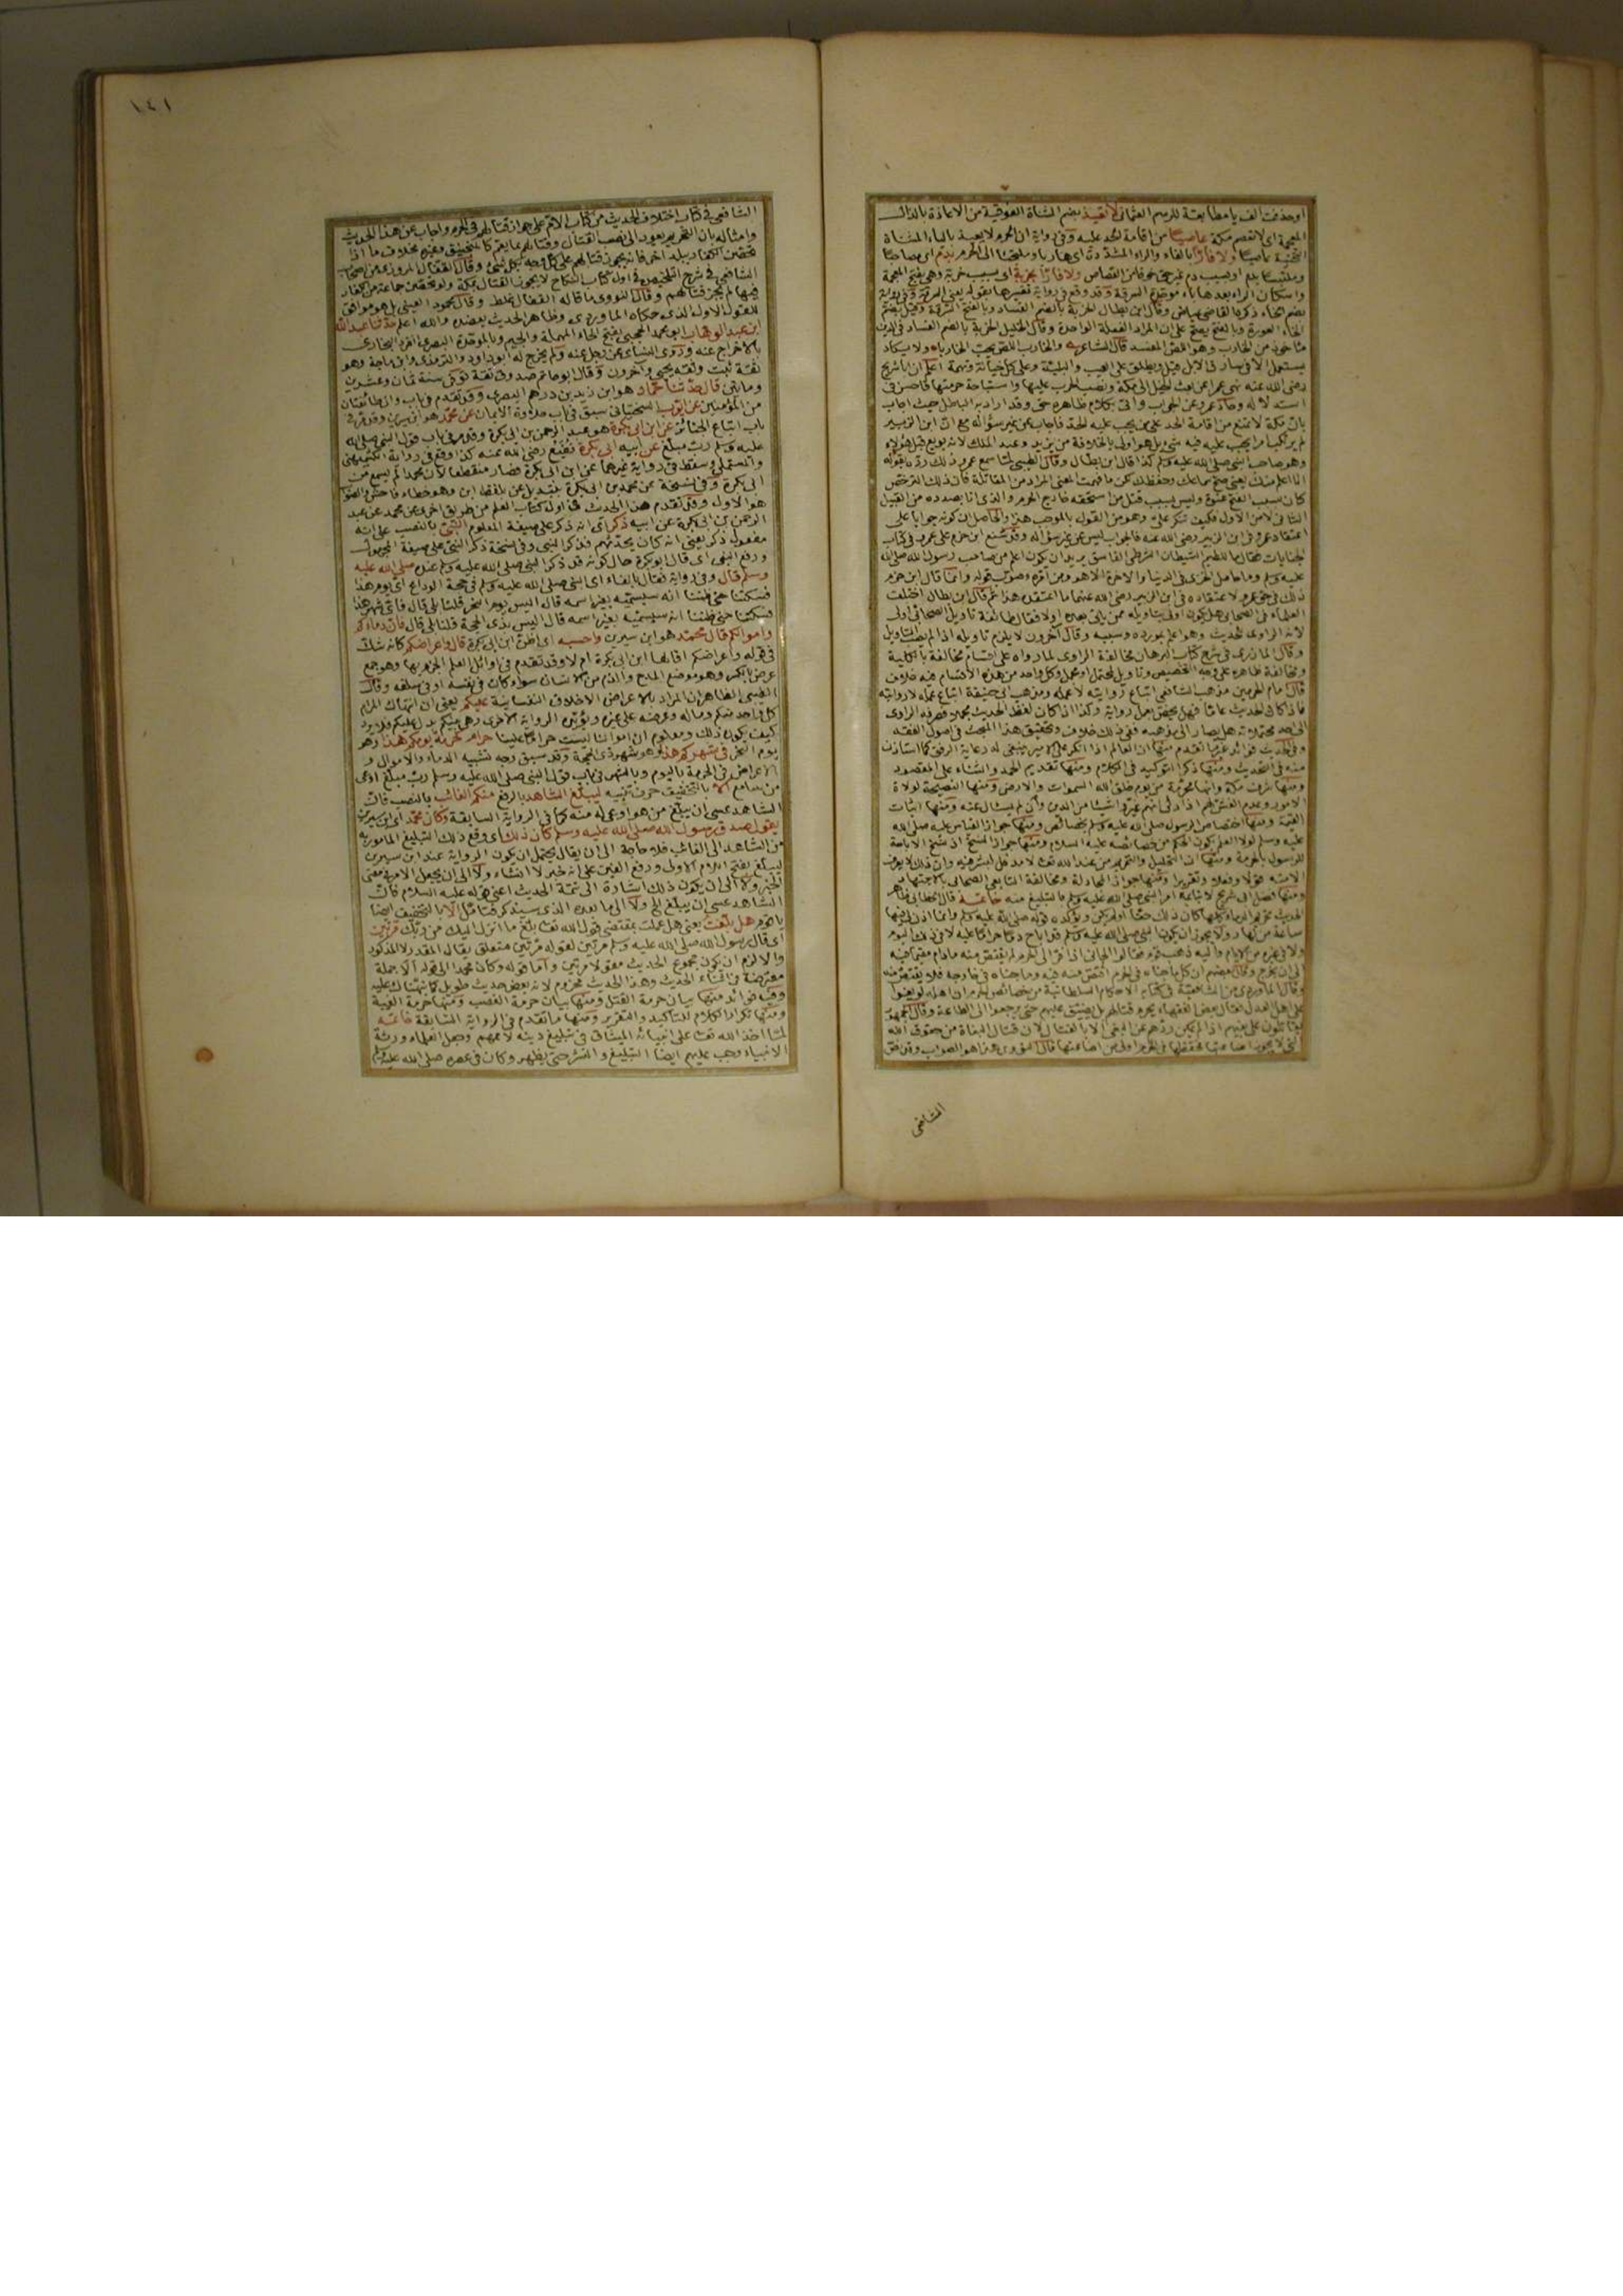 او حذفت الف يا مطابقة للرسم العثماني لا تعيذ بضم المثناة الفوقية من الاعاذة بالذال
المعجمة اى لا تعصم مكة عاصيا من اقامة الحد عليه وفى رواية ان الحرم لا يعيذ بالياء المثناة
التحتية عاصيا ولا فارا بالفاء والراء المشددة اى هاربا وملتجئا الى الحرم بدم اى مصاحبا
وملتبسا بدم او بسبب دم غير حق خوفا من القصاص ولا فارا بخربة اى بسبب خربة وهى بفتح المعجمة
واسكان الراء بعدها باء موحدة السرقة وقد وقع فى رواية تفسيرها بقوله يعنى السرقة وفى رواية
بضم الخاء ذكرها القاضى عياض وقال ابن بطال الخربة بالضم الفساد وبالفتح السرقة وقيل بضم
الخاء العورة وبالفتح يصح على ان المراد الفعلة الواحدة وقال الخليل الخربة بالضم الفساد فى الدين
مأخوذ من الخارب وهو اللص المفسد قال الشاعر والخارب اللص يحب الخاربا ولا يكاد
يستعمل الا فى سارق الابل وقيل ويطلق على العيب والبلية وعلى كل خيانة وتهمة اعلم ان ابا شريح
رضى الله عنه نهى عمرا عن بعث الخيل الى مكة ونصب الحرب عليها واستباحة حرمتها فاحسن فى
استدلاله وحاد عمرو عن الجواب واتى بكلام ظاهره حق وقد اراد به الباطل حيث اجاب
بان مكة لا تمنع من اقامة الحد على من يجب عليه الحد فاجاب عن غير سؤاله مع ان ابن الزبير
لم يرتكب ما يجب عليه فيه شئ بل هو اولى بالخلافة من يزيد وعبد الملك لانه بويع قبل هؤلاء
وهو صاحب النبى صلى الله عليه وسلم كذا قال ابن بطال وقال الطيبى لما سمع عمرو ذلك رده بقوله
انا اعلم منك يعنى صح سماعك وحفظك لكن ما فهمت المعنى المراد من المقاتلة فان ذلك الترخص
كان بسبب الفتح عنوة وليس بسبب قتل من استحقه خارج الحرم والذى انا بصدده من القبيل
الثانى لا من الاول فكيف تنكر على وهو من القول بالموجب هذا والحاصل ان كونه جوابا على
اعتقاد عمرو فى ابن الزبير رضى الله عنه فالجواب ليس عن غير سؤاله وقد شنع ابن حزم على عمرو فى كتاب
الجنايات فقال ما للطيم الشيطان الشرطى الفاسق يريد ان يكون اعلم من صاحب رسول الله صلى الله
عليه وسلم وما حامل الخزى فى الدنيا والآخرة الا هو ومن امّره وصوّب قوله وانما قال ابن حزم
ذلك فى حق عمرو لاعتقاده فى ابن الزبير رضى الله عنهما ما اعتقده هذا ثم قال ابن بطال اختلفت
العلماء فى الصحابى هل يكون اولى بتأويله ممن يأتى بعده اولا فقال طائفة تأويل الصحابى اولى
لانه الراوى للحديث وهو اعلم بمورده وسببه وقال آخرون لا يلزم تأويله اذا لم يصب التأويل
وقال المازرى فى شرح كتاب البرهان مخالفة الراوى لما رواه على اقسام مخالفة بالكلية
ومخالفة ظاهره على وجه التخصيص وتأويل محتمل او مجمل وكل واحد من هذه الاقسام فيه خلاف
قال امام الحرمين مذهب الشافعى اتباع روايته لا عمله ومذهب ابى حنيفة اتباع عمله لا روايته
فاذا كان الحديث عاما فهل يخص بعمل رواية وكذا اذا كان لفظ الحديث مجملا فصرفه الراوى
الى احد محتملاته هل يصار الى مذهبه ففى ذلك خلاف وتحقيق هذا المبحث فى اصول الفقه
وفى الحديث فوائد غير ما تقدم منها ان العالم اذا انكر على الامير ينبغى له رعاية الرفق كما استأذن
منه فى التحديث ومنها ذكر التوكيد فى الكلام ومنها تقديم الحمد والثناء على المقصود
ومنها شرف مكة وانها محرمة من يوم خلق الله السموات والارض ومنها النصيحة لولاة
الامور وعدم الغش لهم اذا رأى انهم غيروا شيئا من الدين وان لم يسئال عنه ومنها اثبات
القيمة ومنها اختصاص الرسول صلى الله عليه وسلم بخصائص ومنها جواز القياس عليه صلى الله
عليه وسلم لولا العلم بكون الحكم من خصائصه عليه السلام ومنها جواز النسخ اذ نسخ الاباحة
للرسول بالحرمة ومنها ان التحليل والتحريم من عند الله تعالى لا مدخل للبشر فيه وان ذلك لا يعرف
الا منه قولا وفعلا وتقريرا ومنها جواز المجادلة ومخالفة التابعى الصحابى بالاجتهاد
ومنها فضل ابى شريح لاتباعه امر النبى صلى الله عليه وسلم بالتبليغ منه خاتمة قال الخطابى ظاهر
الحديث تحريم الدماء كلها كان ذلك حقا او لم يكن ويؤكده قوله صلى الله عليه وسلم وانما اذن لى فيها
ساعة من نهار ولا يجوز ان يكون النبى صلى الله عليه وسلم قد اباح دما حراما عليه لا فى ذلك اليوم
ولا فى غيره من الايام واليه ذهب قوم فقالوا الجانى اذا فر الى الحرم لم يقتص منه ما دام مقيما فيه
الى ان يخرج وقال بعضهم ان كل ما جناه فى الحرم اقتص منه فيه وما جناه فى خارجه فلا يقتص منه
وقال الماوردى من الشافعية فى كتابه الاحكام السلطانية من خصائص الحرم ان اهله لو بغوا
على اهل العدل فقال بعض الفقهاء يحرم قتالهم بل يضيق عليهم حتى يرجعوا الى الطاعة وقال الجمهور
يقاتلون على بغيهم اذا لم يكن ردهم عن البغى الا بالقتال لان قتال البغاة من حقوق الله
التى لا يجوز اضاعتها فحفظها فى الحرم اولى من اضاعتها قال النووى وهذا هو الصواب وقد نص
الشافعى
١٤١
الشافعى فى كتاب اختلاف الحديث من كتاب الام على جواز قتالهم فى الحرم واجاب عن هذا الحديث
وامثاله بان التحريم يعود الى نصب القتال وقتالهم بما يعم كالمنجنيق وغيره بخلاف ما اذا
تحصن الكفار ببلد اخر فانه يجوز قتالهم على كل وجه بكل شئ وقال القفال المروزى من اصحاب
الشافعى فى شرح التلخيص فى اول كتاب النكاح لا يجوز القتال بمكة ولو تحصن جماعة من الكفار
فيها لم يجز قتالهم وقال النووى ما قاله القفال غلط وقال محمود العينى بل هو موافق
للقول الاول الذى حكاه الماوردى وظاهر الحديث يعضده والله اعلم حدثنا عبد الله
ابن عبد الوهاب ابو محمد الحجبى بفتح الحاء المهملة والجيم وبالموحدة البصرى انفرد البخارى
بالاخراج عنه وروى النسائى عن رجل عنه ولم يخرج له ابو داود والترمذى وابن ماجة وهو
ثقة ثبت وثقه يحيى وآخرون وقال ابو حاتم صدوق ثقة توفى سنة ثمان وعشرين
ومايتين قال حدثنا حماد هو ابن زيد بن درهم البصرى وقد تقدم فى باب وان طائفتان
من المؤمنين عن ايوب السختيانى سبق فى باب حلاوة الايمان عن محمد هو ابن سيرين وقد مر فى
باب اتباع الجنائز عن ابن ابى بكرة هو عبد الرحمن بن ابى بكرة وقد مر فى باب قول النبى صلى الله
عليه وسلم رب مبلغ عن ابيه ابى بكرة نفيع رضى الله عنه كذا وقع فى رواية الكشميهنى
والمستملى وسقط فى رواية غيرهما عن ابن ابى بكرة فصار منقطعا لان محمدا لم يسمع من
ابى بكرة وفى نسخة عن محمد بن ابى بكرة بتبديل عن بلفظ ابن وهو خطاء فاحش والصواب
هو الاول وقد تقدم هذا الحديث فى اول كتاب العلم من طريق اخرى عن محمد عن عبد
الرحمن بن ابى بكرة عن ابيه ذكر اى انه ذكر على صيغة المعلوم النبى بالنصب على انه
مفعول ذكر يعنى انه كان يحدثهم فذكر النبى وفى نسخة ذكر النبى على صيغة المجهول
ورفع النبى اى قال ابو بكرة حال كونه قد ذكر النبى صلى الله عليه وسلم عنده صلى الله عليه
وسلم قال وفى رواية فقال بالفاء اى النبى صلى الله عليه وسلم فى حجة الوداع اى يوم هذا
فسكتنا حتى ظننا انه سيسميه بغير اسمه قال اليس يوم النحر قلنا بلى قال فاى شهر هذا
فسكتنا حتى ظننا انه سيسميه بغير اسمه قال اليس بذى الحجة قلنا بلى قال فان دماءكم
واموالكم قال محمد هو ابن سيرين واحسبه اى اظن ابن ابى بكرة قال واعراضكم كانه شك
فى قوله واعراضكم اقالها ابن ابى بكرة ام لا وقد تقدم فى اوائل العلم الجزم بها وهو جمع
عرض بالكسر وهو موضع المدح والذم من الانسان سواء كان فى نفسه او فى سلفه وقال
الطيبى الظاهر ان المراد بالاعراض الاخلاق النفسانية عليكم يعنى ان انتهاك
كل واحد منكم وماله وعرضه حرام على غيره ويؤيده الرواية الاخرى وهى بينكم بدل عليكم فلا يرد
كيف يكون ذلك ومعلوم ان اموالنا ليست حراما علينا حرام كحرمة يومكم هذا وهو
يوم النحر فى شهركم هذا وهو شهر ذى الحجة وقد سبق وجه تشبيه الدماء والاموال و
الاعراض فى الحرمة باليوم وبالشهر فى باب قول النبى صلى الله عليه وسلم رب مبلغ اوعى
من سامع الا بالتخفيف حرف تنبيه ليبلغ الشاهد بالرفع منكم الغائب بالنصب فان
الشاهد عسى ان يبلغ من هو اوعى له منه كما فى الرواية السابقة وكان محمد اى ابن سيرين
يقول صدق رسول الله صلى الله عليه وسلم كان ذلك اى وقع ذلك التبليغ المامور به
من الشاهد الى الغائب فلا حاجة الى ان يقال يحتمل ان يكون الرواية عند ابن سيرين
ليبلغ بفتح اللام الاولى ورفع الغين على انه خبر لا انشاء ولا الى ان يجعل الامر فى معنى
الخبر ولا الى ان يكون ذلك اشارة الى تتمة الحديث اعنى قوله عليه السلام فان
الشاهد عسى ان يبلغ الخ ولا الى ما بعده الذى سيذكر فتأمل الا بالتخفيف ايضا
يا قوم هل بلغت يعنى هل عملت بمقتضى قول الله تعالى بلغ ما انزل اليك من ربك مرتين
اى قال رسول الله صلى الله عليه وسلم مرتين لقوله مرتين متعلق بقال المقدر لا المذكور
والا لزم ان يكون مجموع الحديث مقولا مرتين واما قوله وكان محمد الى قوله الا جملة
معترضة فى اثناء الحديث وهذا الحديث مخروم لانه بعض حديث طويل كما نبهناك عليه
وفيه فوائد منها بيان حرمة القتل ومنها بيان حرمة الغصب ومنها حرمة الغيبة
ومنها تكرار الكلام للتأكيد والتقرير ومنها ما تقدم فى الرواية السابقة خاتمة
لما اخذ الله تعالى على انبيائه الميثاق فى تبليغ دينه لاممهم وجعل العلماء ورثة
الانبياء وجب عليهم ايضا التبليغ والنشر حتى يظهر وكان فى عصره صلى الله عليه وسلم